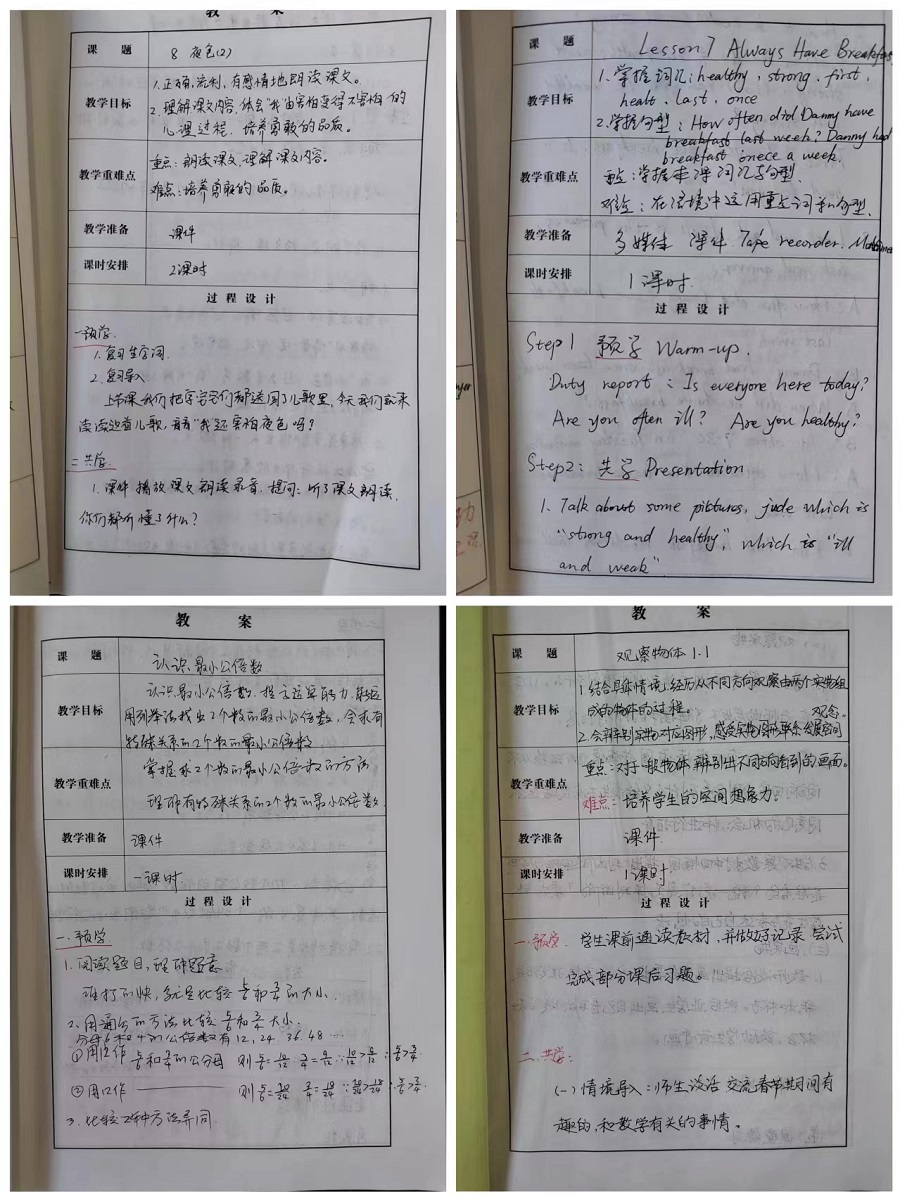 教 案
课 题
8 夜色(2)
教学目标
1.正确,流利,有感情地朗读课文。
2.理解课文内容,体会"我"由害怕变得不害怕的
心理过程,培养勇敢的品质。
教学重难点
重点:朗读课文,理解课文内容。
难点:培养勇敢的品质。
教学准备
课件
课时安排
2课时
过 程 设 计
一预学.
1.复习生字词.
2.复习导入.
上节课我们把字宝宝们都送回了儿歌里,今天我们就来
读读这首儿歌,看看"我"还害怕夜色吗?
二共学.
1.课件播放课文朗读录音,提问:听了课文朗读,
你们都听懂了什么?
课 题
Lesson 7 Always Have Breakfas
教学目标
1.掌握词汇:healthy, strong, first,
healt, last, once
2.掌握句型:How often did Danny have
breakfast last week? Danny had
breakfast onece a week.
教学重难点
重点:掌握本课词汇与句型.
难点:在语境中运用重点词和句型.
教学准备
多媒体 课件 Tape recorder.
课时安排
1课时.
过 程 设 计
Step1 预学 Warm-up.
Duty report : Is everyone here today?
Are you often ill? Are you healthy?
Step2: 共学 Presentation
1. Talk about some pictures, jude which is
"strong and healthy", which is "ill
and weak"
教 案
课 题
认识最小公倍数
教学目标
认识最小公倍数.提高运算能力.能运
用列举法找出2个数的最小公倍数,会求有
特殊关系的2个数的最小公倍数
教学重难点
掌握求2个数的最小公倍数的方法
理解有特殊关系的2个数的最小公倍数.
教学准备
课件
课时安排
一课时.
过 程 设 计
一.预学
1.阅读题目,理解题意
谁打的快,就是比较 和 的大小.
2.用通分的方法比较 和 大小.
分母6和4的公倍数有12, 24 36. 48 ...
①用12作 和 的公分母 则
②用12作 则
3.比较2种方法异同.
教 案
课 题
观察物体1.1
教学目标
1.结合具体情境,经历从不同方向观察由两个实物组
成的物体的过程。
观念。
2.会辨别实物对应图形,感受实物图形联系发展空间
教学重难点
重点:对于一般物体辨别出不同方向看到的画面。
难点:培养学生的空间想象力.
教学准备
课件.
课时安排
1课时.
过 程 设 计
一.预学. 学生课前通读教材,并做好记录 尝试
完成部分课后习题。
二.共学:
(一)情境导入:师生谈话 交流春节期间有
趣的,和数学有关的事情。